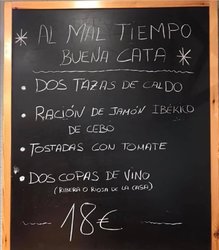 AL MAL TIEMPO
BUENA CATA
• DOS TAZAS DE CALDO
• RACIÓN DE JAMÓN IBÉRICO
DE CEBO
• TOSTADAS CON TOMATE
• DOS COPAS DE VINO
(RIBERA O RIOJA DE LA CASA)
18€